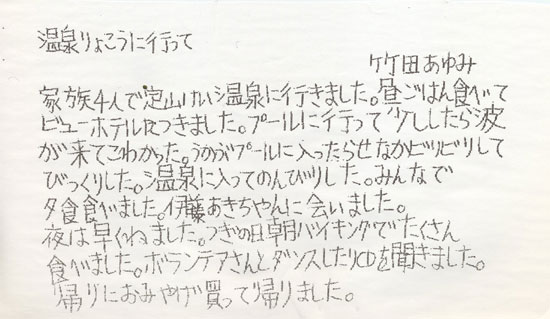 温泉りょこうに行って
竹田あゆみ
家族4人で定山けい温泉に行きました。昼ごはん食べて
ビューホテルにつきました。プールに行って少ししたら波
が来てこわかった。うのぷプールに入ったらせなかビリビリして
びっくりした。温泉に入ってのんびりした。みんなで
夕食食べました。伊藤あきちゃんに会いました。
夜は早くねました。つぎの日朝バイキングでたくさん
食べました。ボランテアさんとダンスしたりCDを聞きました。
帰りにおみやげ買って帰りました。